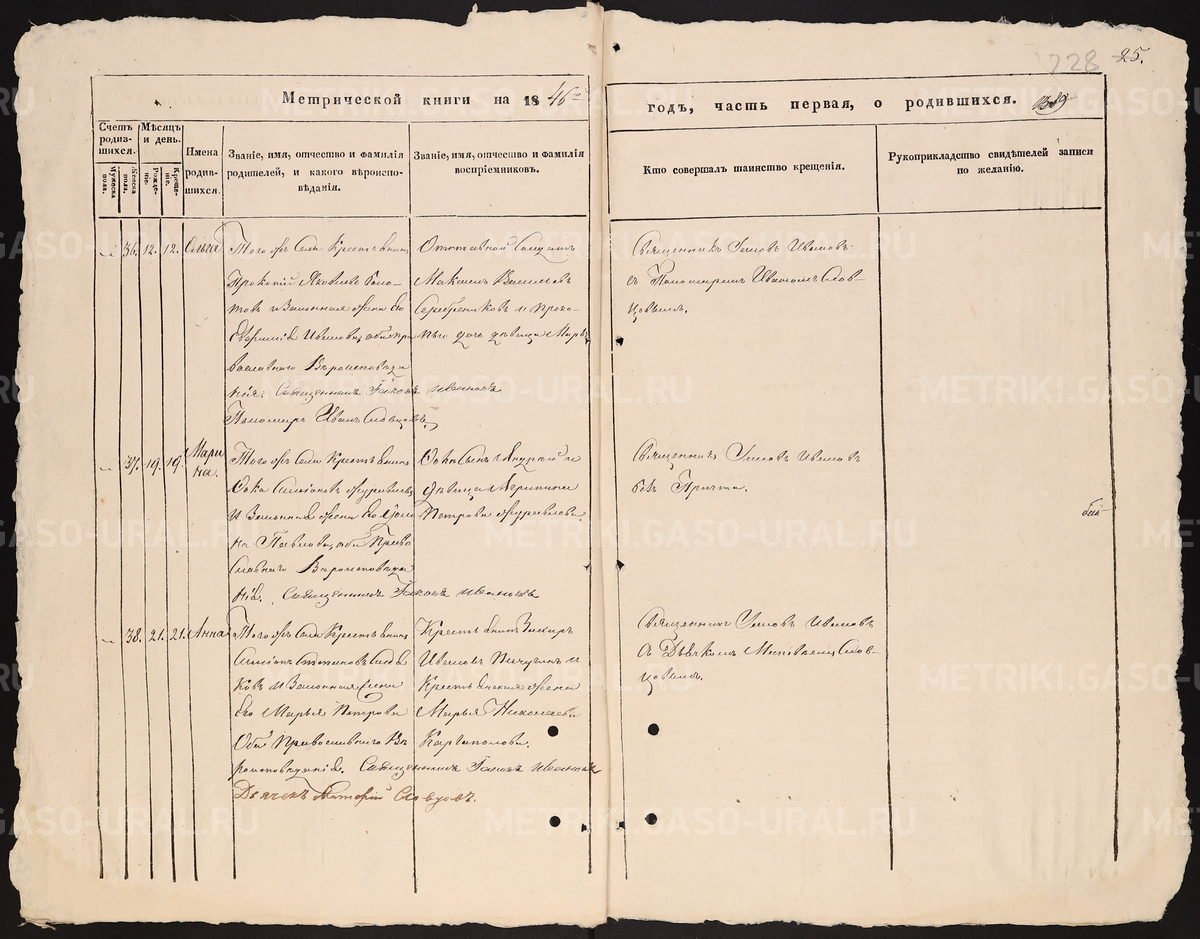 228 25.
Метрической книги на 1846 годъ, часть первая, о родившихся. 1389
Счетъ родив-
шихся.
Мужеска пола.
Женска пола.
Мѣсяцъ и день.
Рожде-
ніе.
Креще-
ніе.
Имена
родив-
шихся.
Званіе, имя, отчество и фамилія
родителей, и какого вѣроиспо-
вѣданія.
Званіе, имя, отчество и фамилія
воспріемниковъ.
Кто совершалъ таинство крещенія.
Рукоприкладство свидѣтелей записи
по желанію.
36. 12. 12. Ольга
Того жъ Села Крестьянинъ
Прокопій Яковлевъ
и Законная жена его
Ивановна, оба пра
вославнаго Вѣроисповѣда
нія. Священникъ Іаковъ Ивановъ
Пономарь Иванъ Словцовъ
Отставной Солдатъ
Максимъ Васильевъ
Серебренниковъ и Проко-
пью дочь дѣвица Марья
Священникъ Іаковъ Ивановъ
съ Пономаремъ Иваномъ Слов-
цовымъ.
37. 19. 19. Мари
на.
Того жъ Села Крестьянинъ
Фока Симіоновъ Журавлевъ
и Законная жена его
Павлова, оба Право
славнаго Вѣроисповѣда
нія. Священникъ Іаковъ Ивановъ
Фокѣ Сынъ Андрей и
дѣвица Агрипина
Петрова Журавлева.
Священникъ Іаковъ Ивановъ
безъ Причта.
38. 21. 21. Анна
Того жъ Села Крестьянинъ
Симіонъ
и Законная жена
его Марья Петрова
Оба Православнаго Вѣ
роисповѣданія. Священникъ Іаковъ Ивановъ
Дьячекъ Словцовъ.
Крестьянинъ Захаръ
Ивановъ Пичугинъ и
Крестьянская жена
Марья Николаева
Каргаполова.
Священникъ Іаковъ Ивановъ
съ Дьячкомъ Слов-
цовымъ.
METRIKI.GASO-URAL.RU